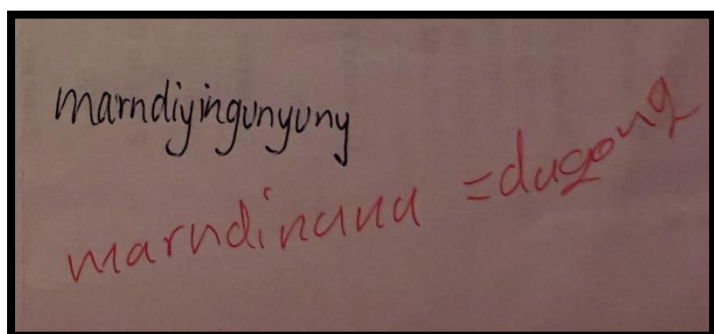 marndiyingunyuny
marndinunu =dugong